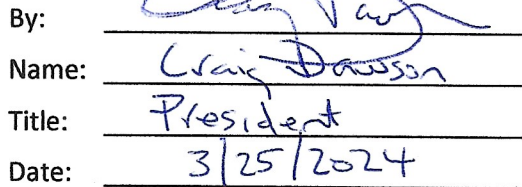 By:
Name: Craig Dawson
Title: President
Date: 3/25/2024